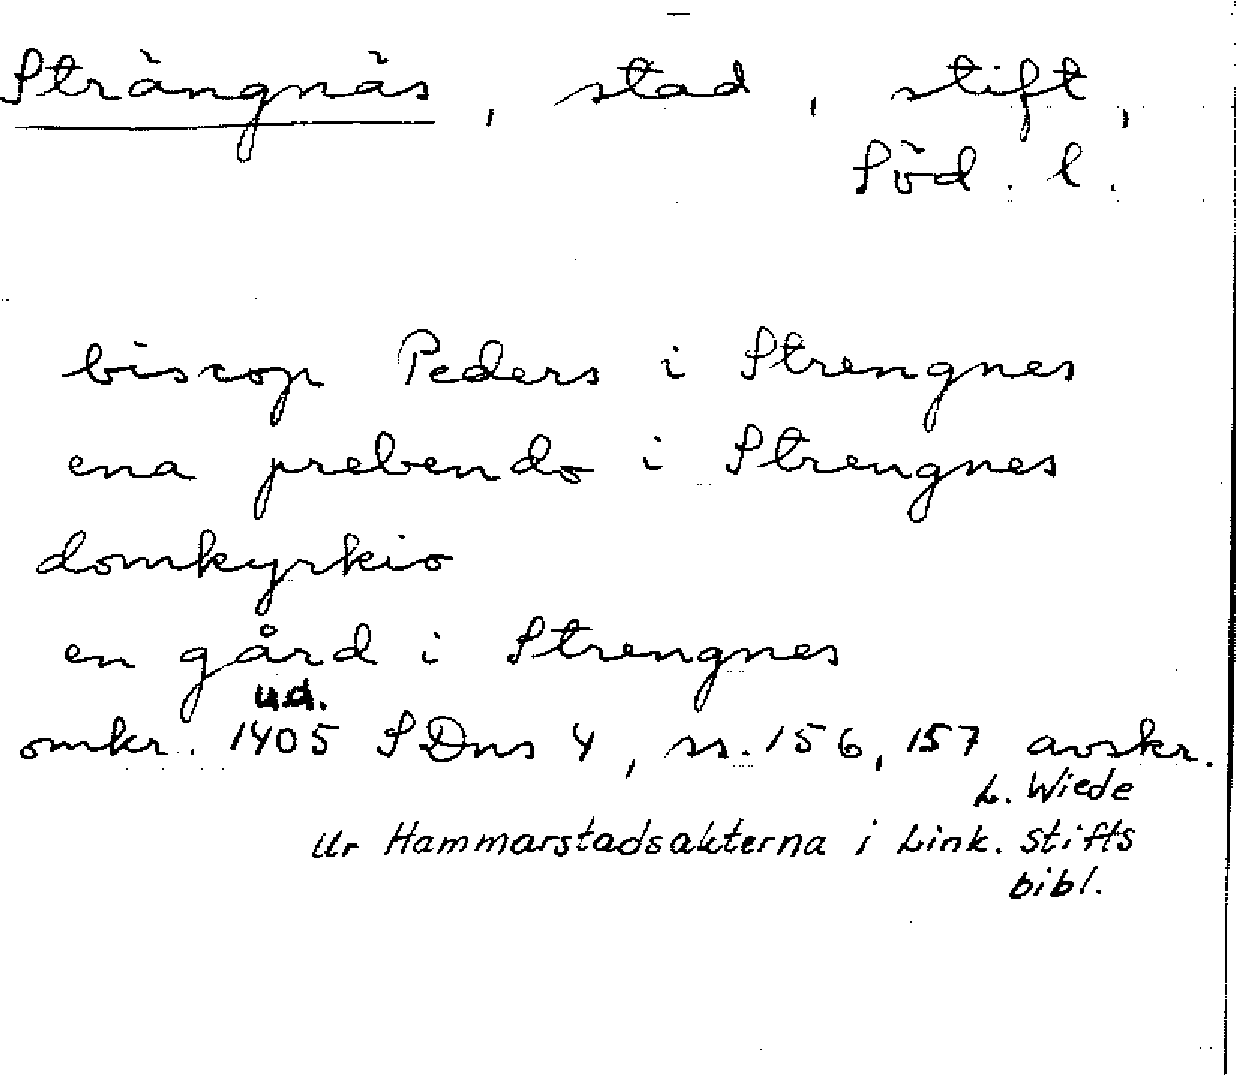 Strängnäs, stad, stift,
Söd. l.
biscop Peders i Strengnes
ena prebendo i Strengnes
domkyrkio
en gård i Strengnes
u.d.
omkr. 1405 SDns 4, ss. 156, 157 avskr.
L. Wiede
Ur Hammarstadsakterna i Link. stifts
bibl.